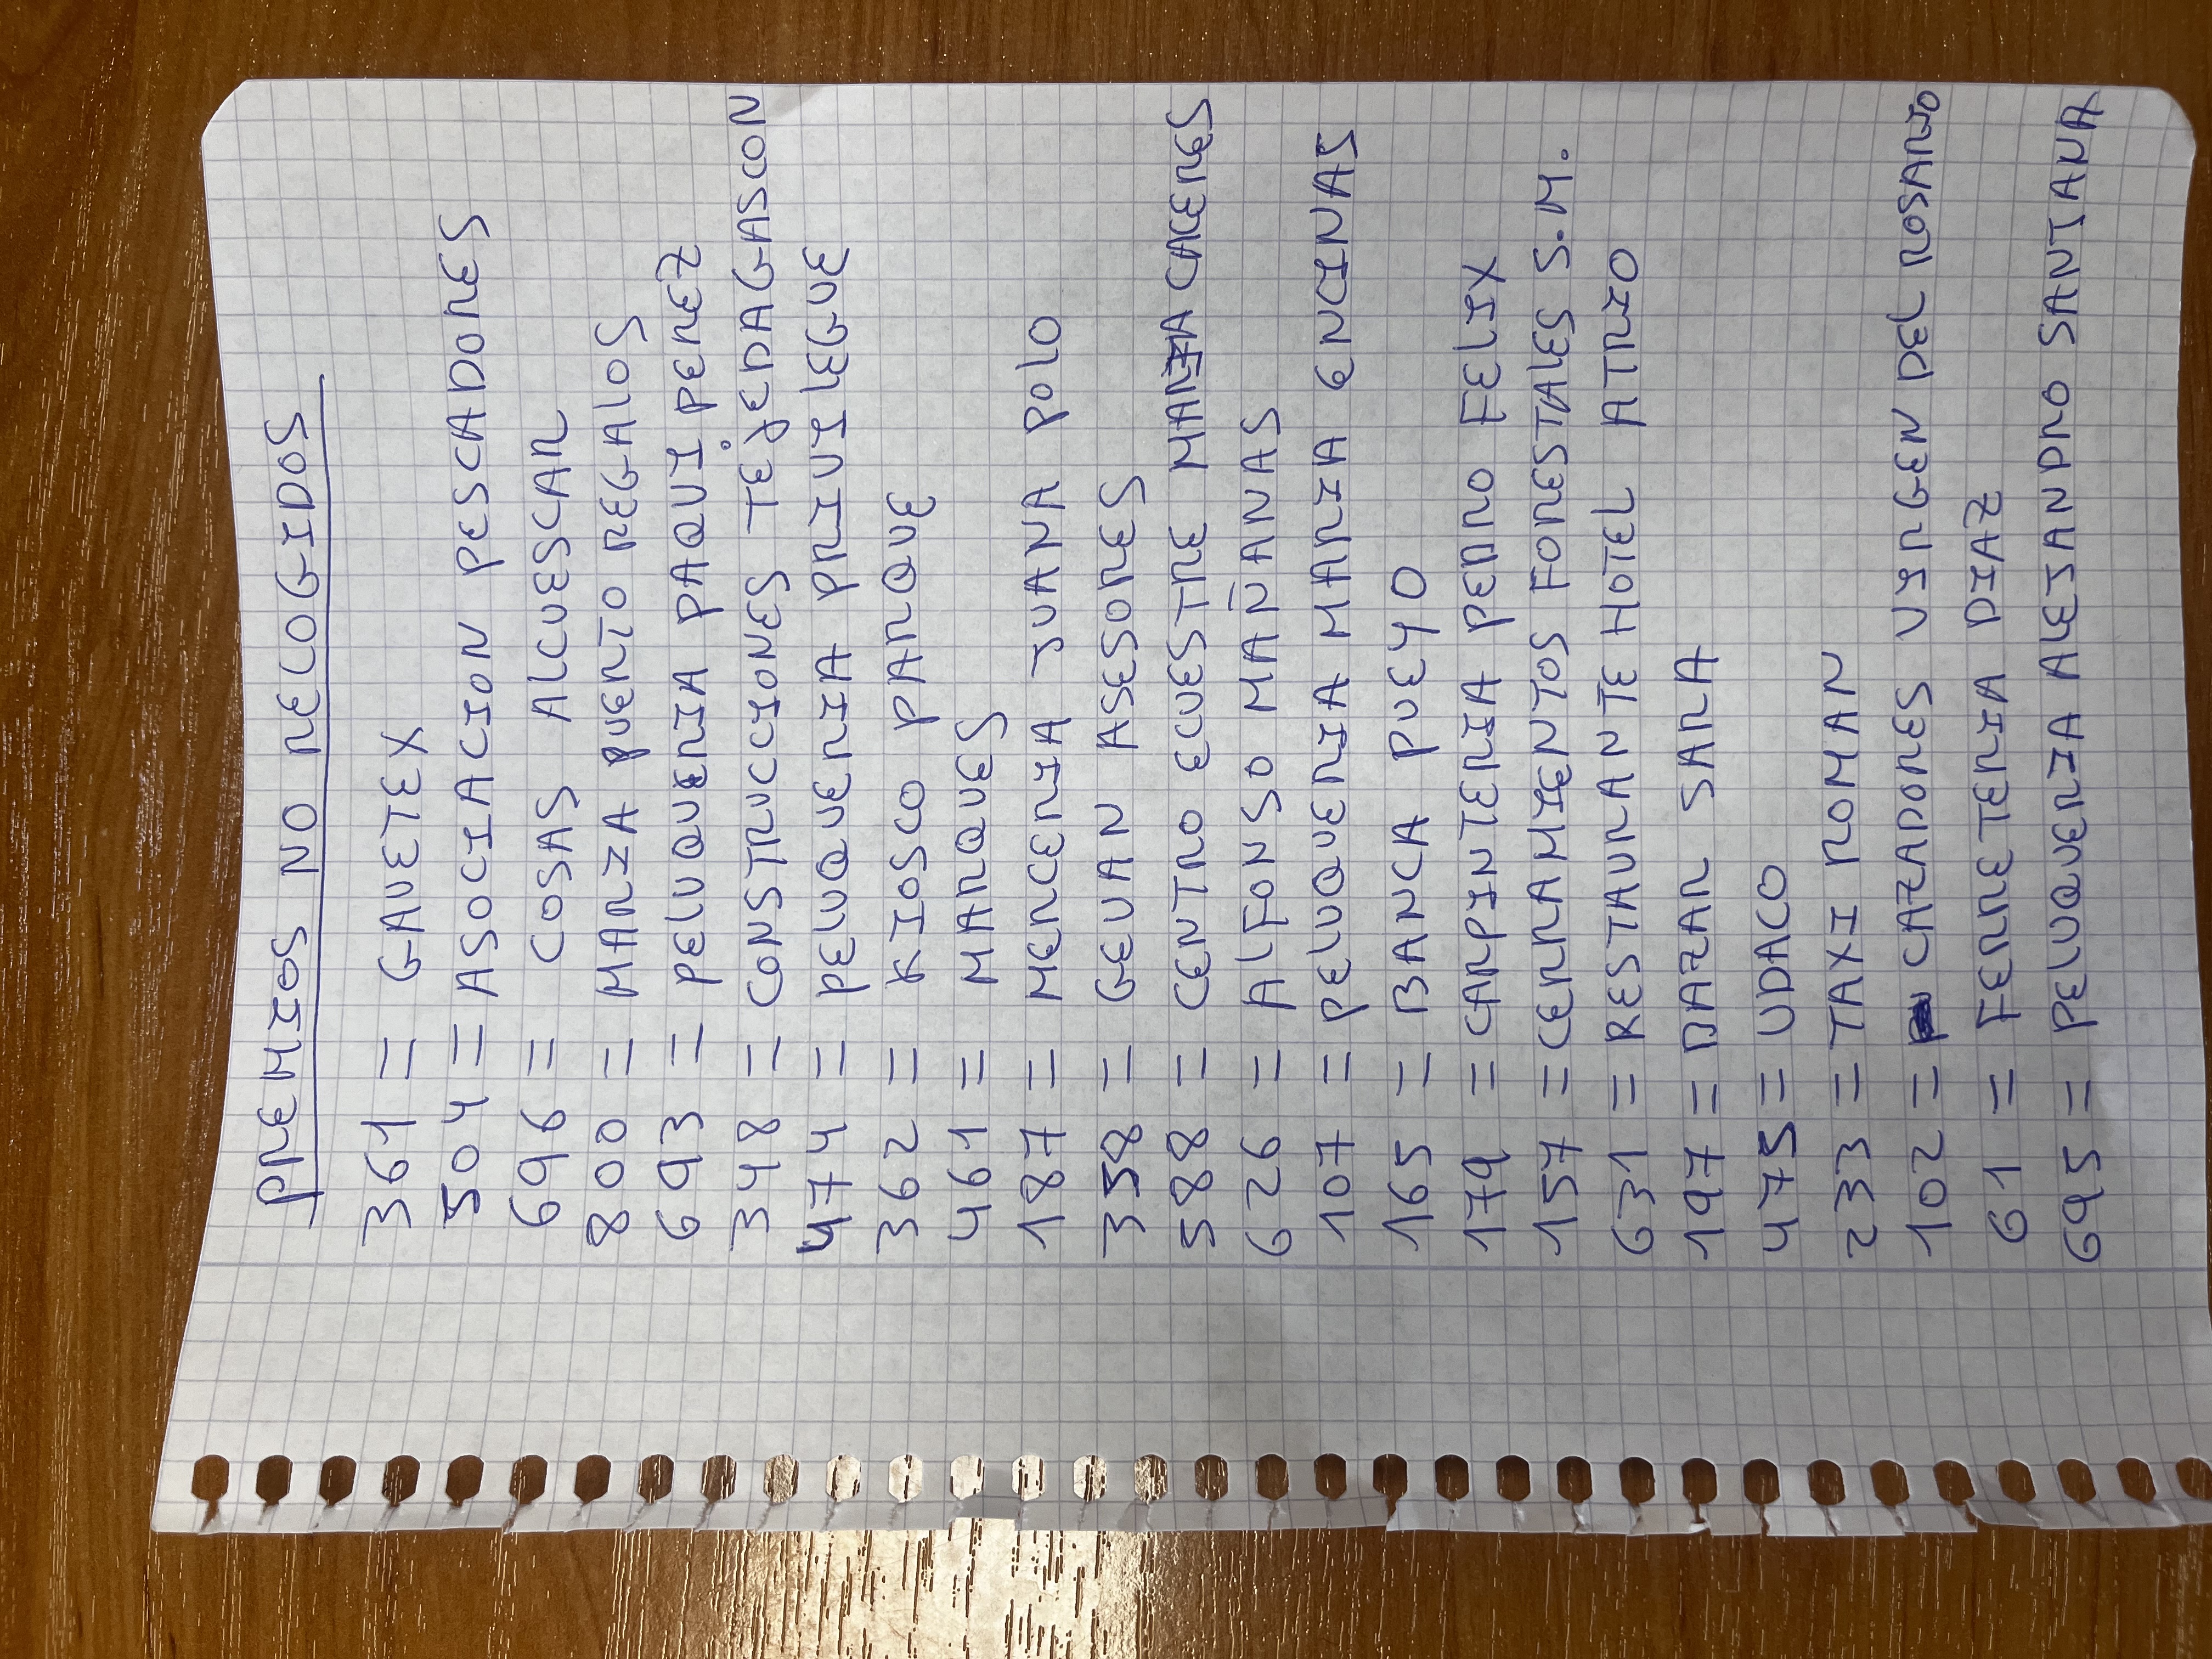 PREMIOS NO RECOGIDOS
361 = GAVETEX
504 = ASOCIACION PESCADORES
696 = COSAS ALCUESCAR
800 = MARIA PUERTO REGALOS
693 = PELUQUERIA PAQUI PEREZ
348 = CONSTRUCCIONES TEJEDA GASCON
474 = PELUQUERIA PRIVILEGUE
362 = KIOSCO PARQUE
461 = MARQUES
187 = MERCERIA JUANA POLO
358 = GEVAN ASESORES
588 = CENTRO ECUESTRE CACERES
626 = ALFONSO MAÑANAS
107 = PELUQUERIA MARIA ENCINAS
165 = BANCA PUEYO
179 = CARPINTERIA PEDRO FELIX
157 = CERRAMIENTOS FORESTALES S.M.
631 = RESTAURANTE HOTEL ATRIO
197 = BAZAR SARA
475 = UDACO
233 = TAXI ROMAN
102 = CAZADORES VIRGEN DEL ROSARIO
61 = FERRETERIA DIAZ
695 = PELUQUERIA ALEJANDRO SANTIANA